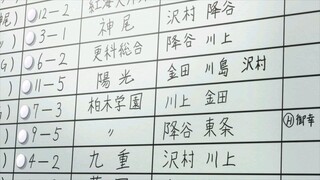 12-2 沢村 降谷
3-1 神尾 降谷 川上
G) 6-2 更科総合 金田 川島 沢村
) 11-5 陽光
) 7-3 柏木学園 川上 金田
) 9-5 〃 降谷 東条 H 御幸
) 4-2 九重 沢村 川上